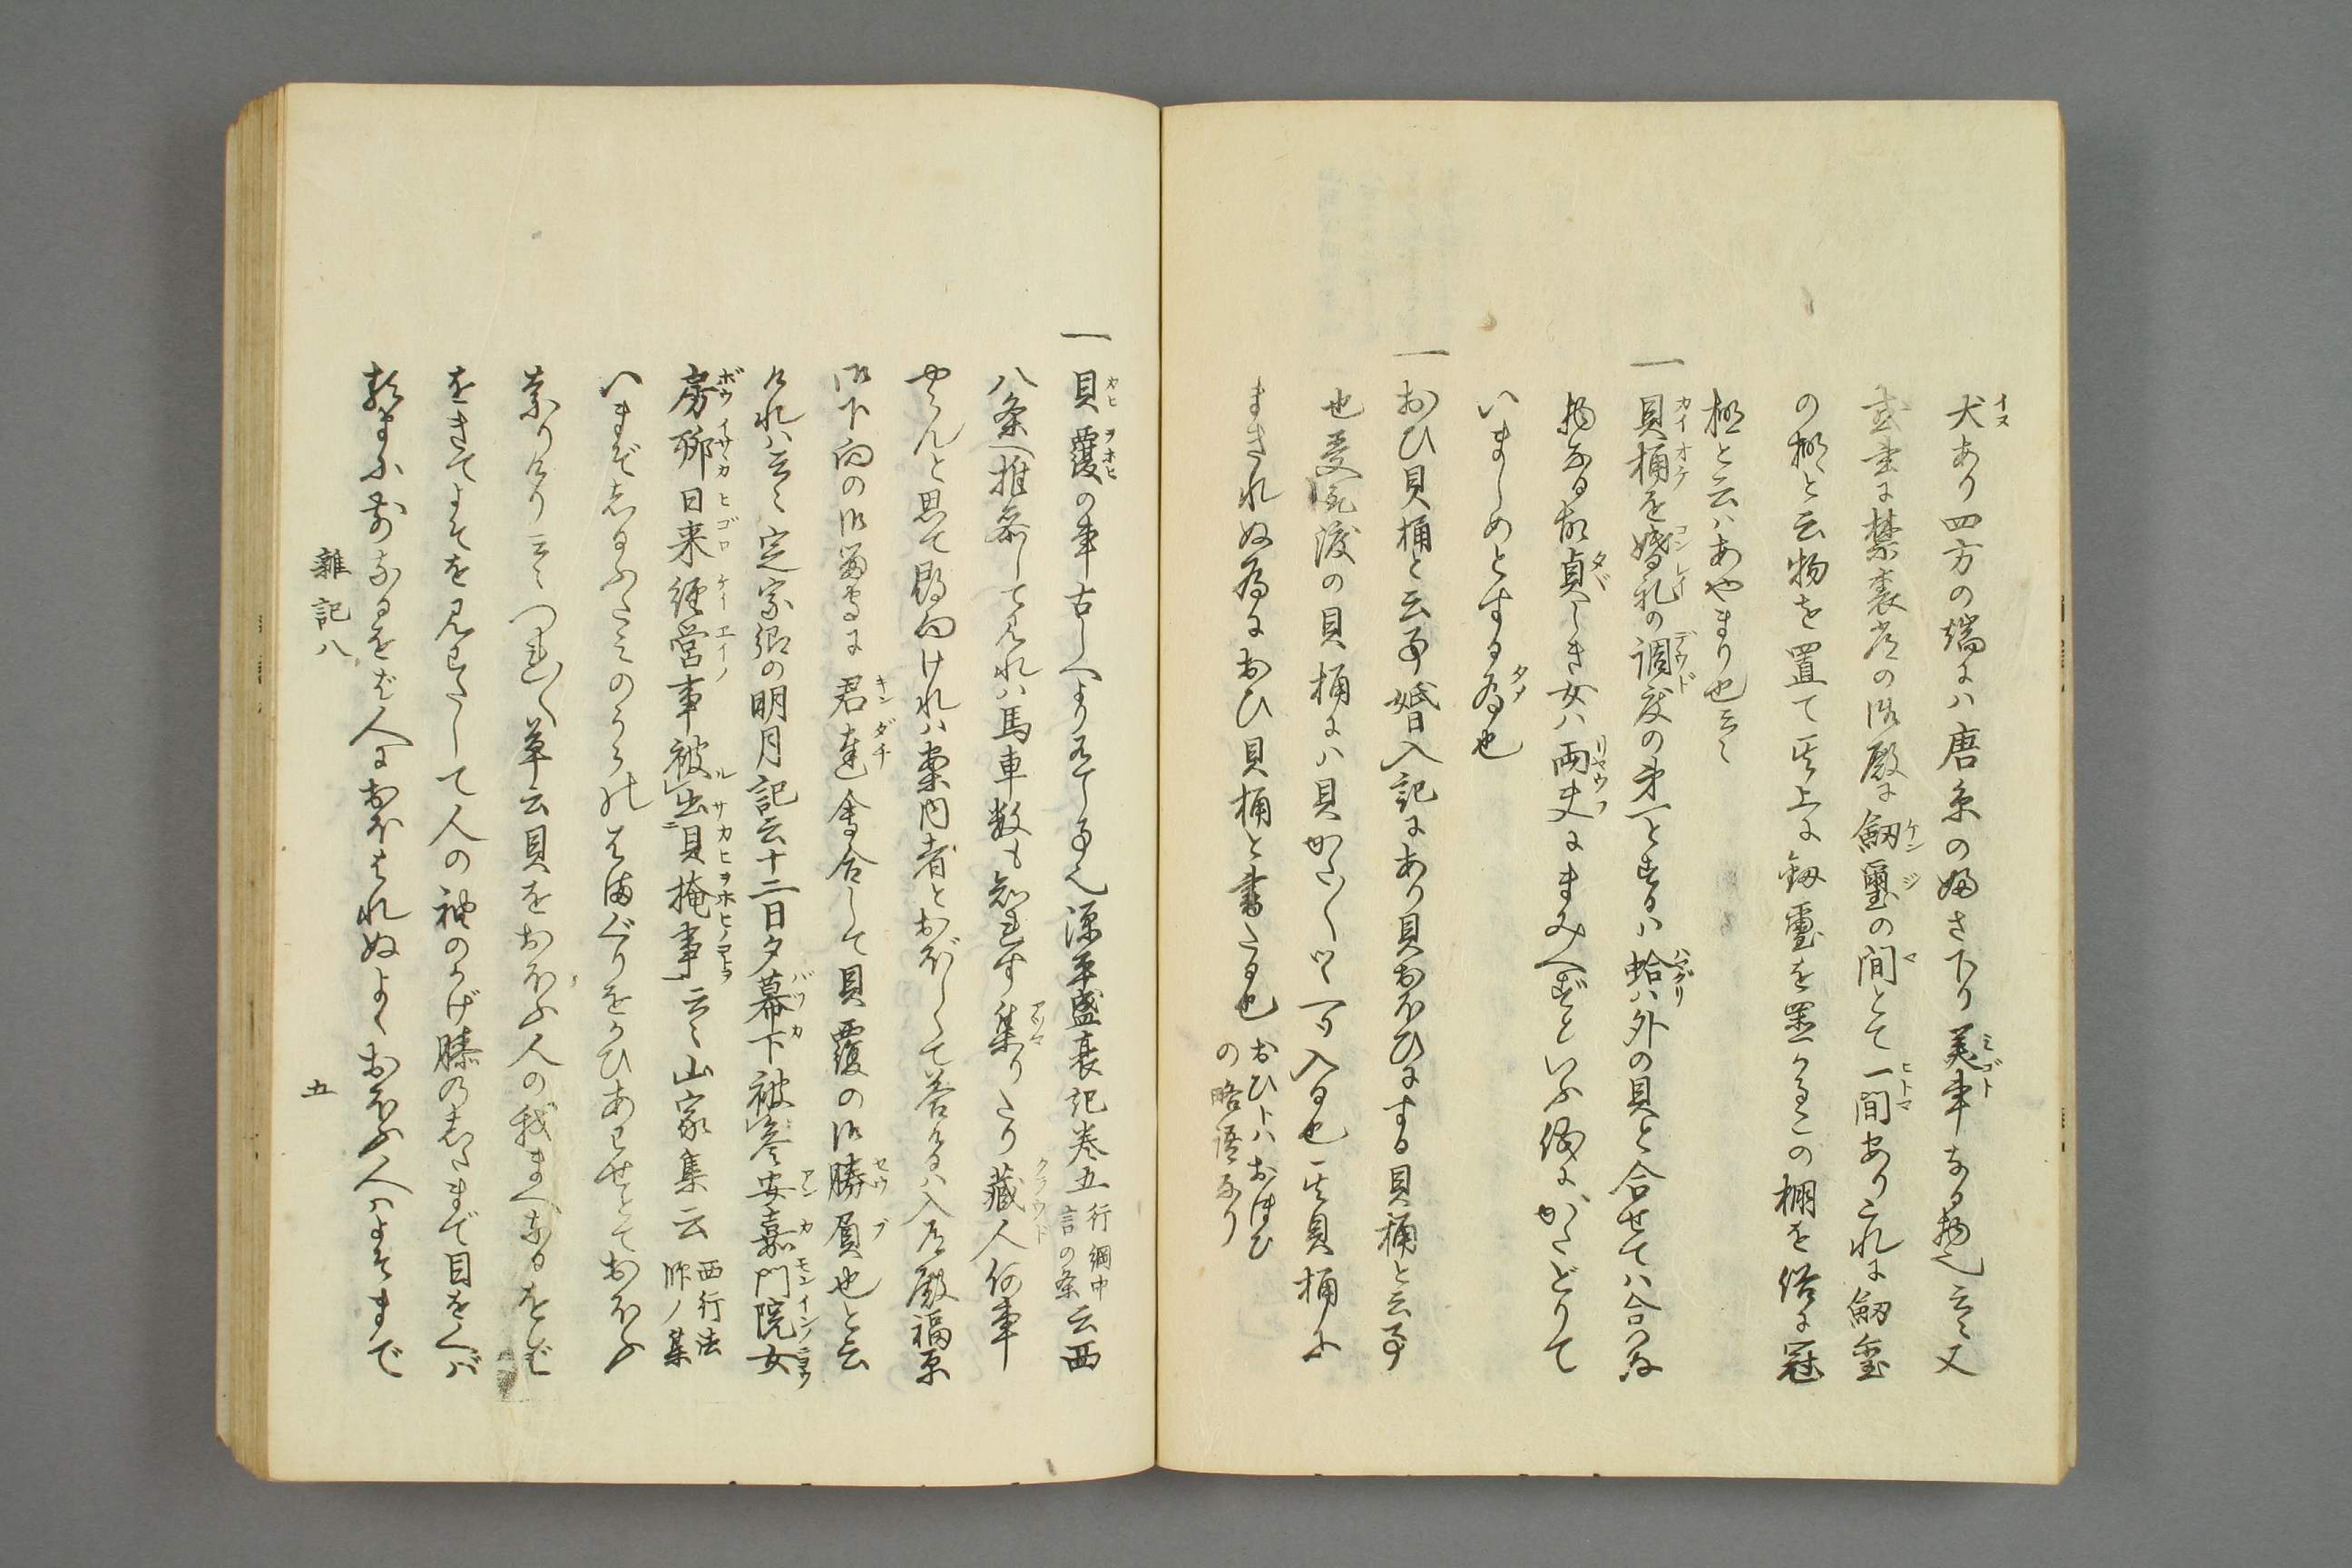 犬あり四方の端にハ唐糸の婦さ下り美事なる物也云々又
或書に禁裏の御殿に釼璽の間とて一間ありこれに釼璽
の棚と云物を置て其上に釼璽を置かるこの棚を俗に冠
棚と云ハあやまり也云々
一 貝桶を婚礼の調度の第一とするハ蛤ハ外の貝と合せてハ合ハぬ
物なる故貞しき女ハ両夫にまみへずといふ儀にかたどりて
いましめとする為也
一 おひ貝桶と云事婚入記にあり貝おほひにする貝桶と云事
也請取渡の貝桶にハ貝かた〳〵ツヽ一つ入る也其貝桶に
まぎれぬ為におひ貝桶と書たる也 おひトハおほひ
の略語なり
一 貝覆の事古しへより有てし事也源平盛衰記巻五 行綱中
言の条 云西
八条へ推参して見れハ馬車数も知らす集りたり蔵人何事
やらんと思て尋けれハ案内者とおぼしくて答けるハ入道殿福原
御下向の御留守に君達会合して貝覆の御勝負也と云
けれハ云々定家卿の明月記云十二日夕幕下被参安嘉門院女
房聊日来経営事被出貝掩事云々山家集云 西行法
師ノ集
いまぞしるふたみのうらのはまぐりをかひあはせとておほふ
なりけり云々つれ〳〵草云貝をおほふ人の我まへなるをバ
をきてよそを見わたして人の袖のかげ膝の志たまで目をくバ
る間に前なるをバ人におほはれぬよくおほふ人ハよそまで
雑記八
五